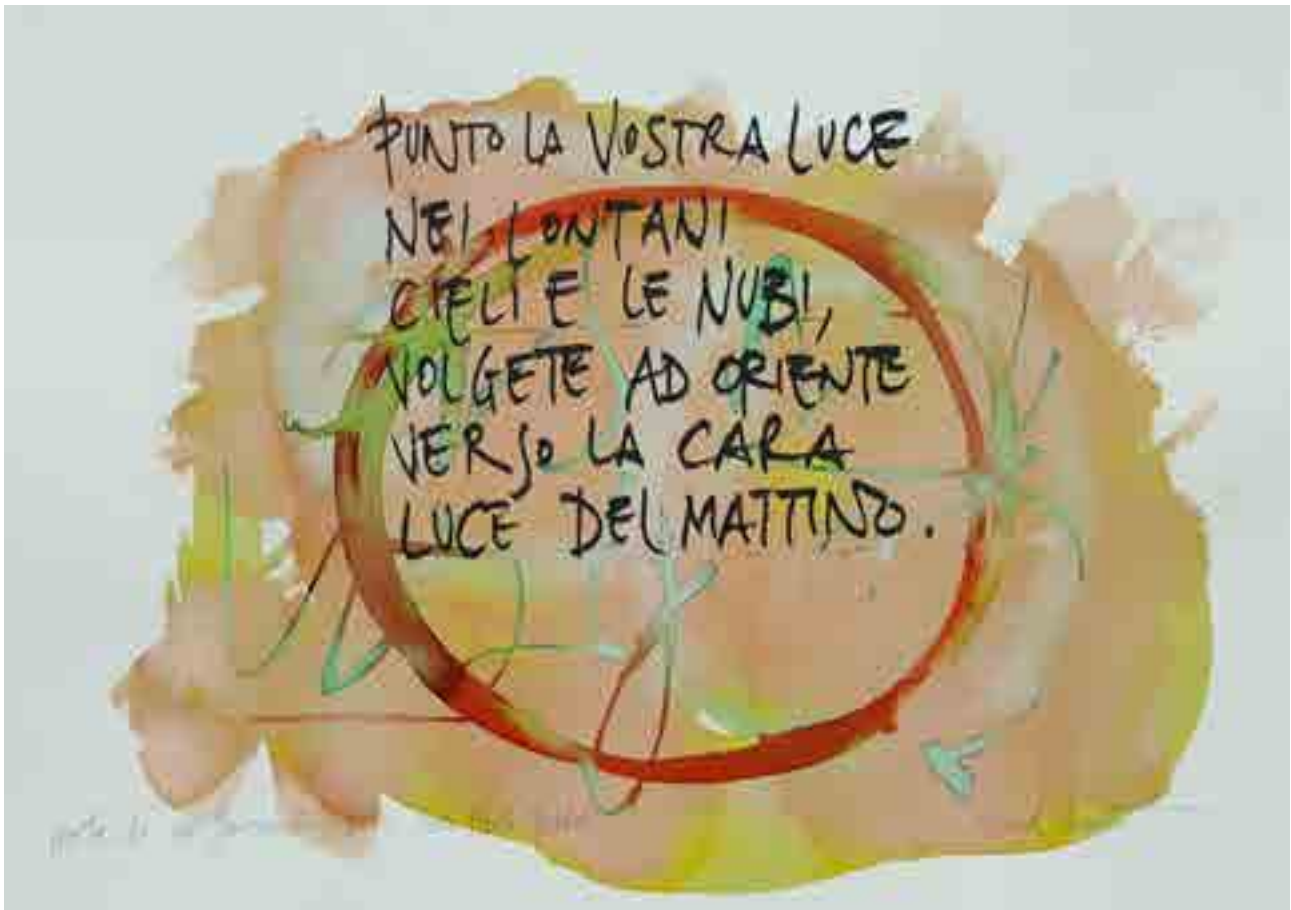 PUNTO LA VOSTRA LUCE
NEI LONTANI
CIELI E LE NUBI,
VOLGETE AD ORIENTE
VERSO LA CARA
LUCE DEL MATTINO.